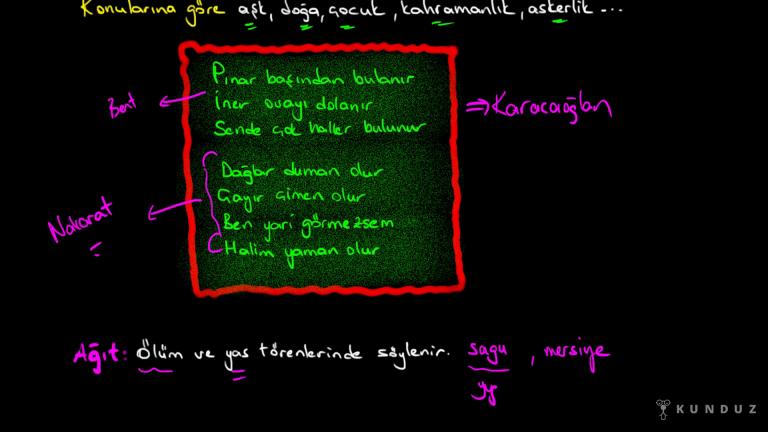 Konularına göre aşk, doğa, çocuk, kahramanlık, askerlik ...
Pınar başından bulanır
Bent
İner ovayı dolanır
⇒ Karacaoğlan
Sende çok haller bulunur
Dağlar duman olur
Çayır çimen olur
Nakarat
Ben yari görmezsem
Halim yaman olur
Ağıt: Ölüm ve yas törenlerinde söylenir. sagu, mersiye
KUNDUZ